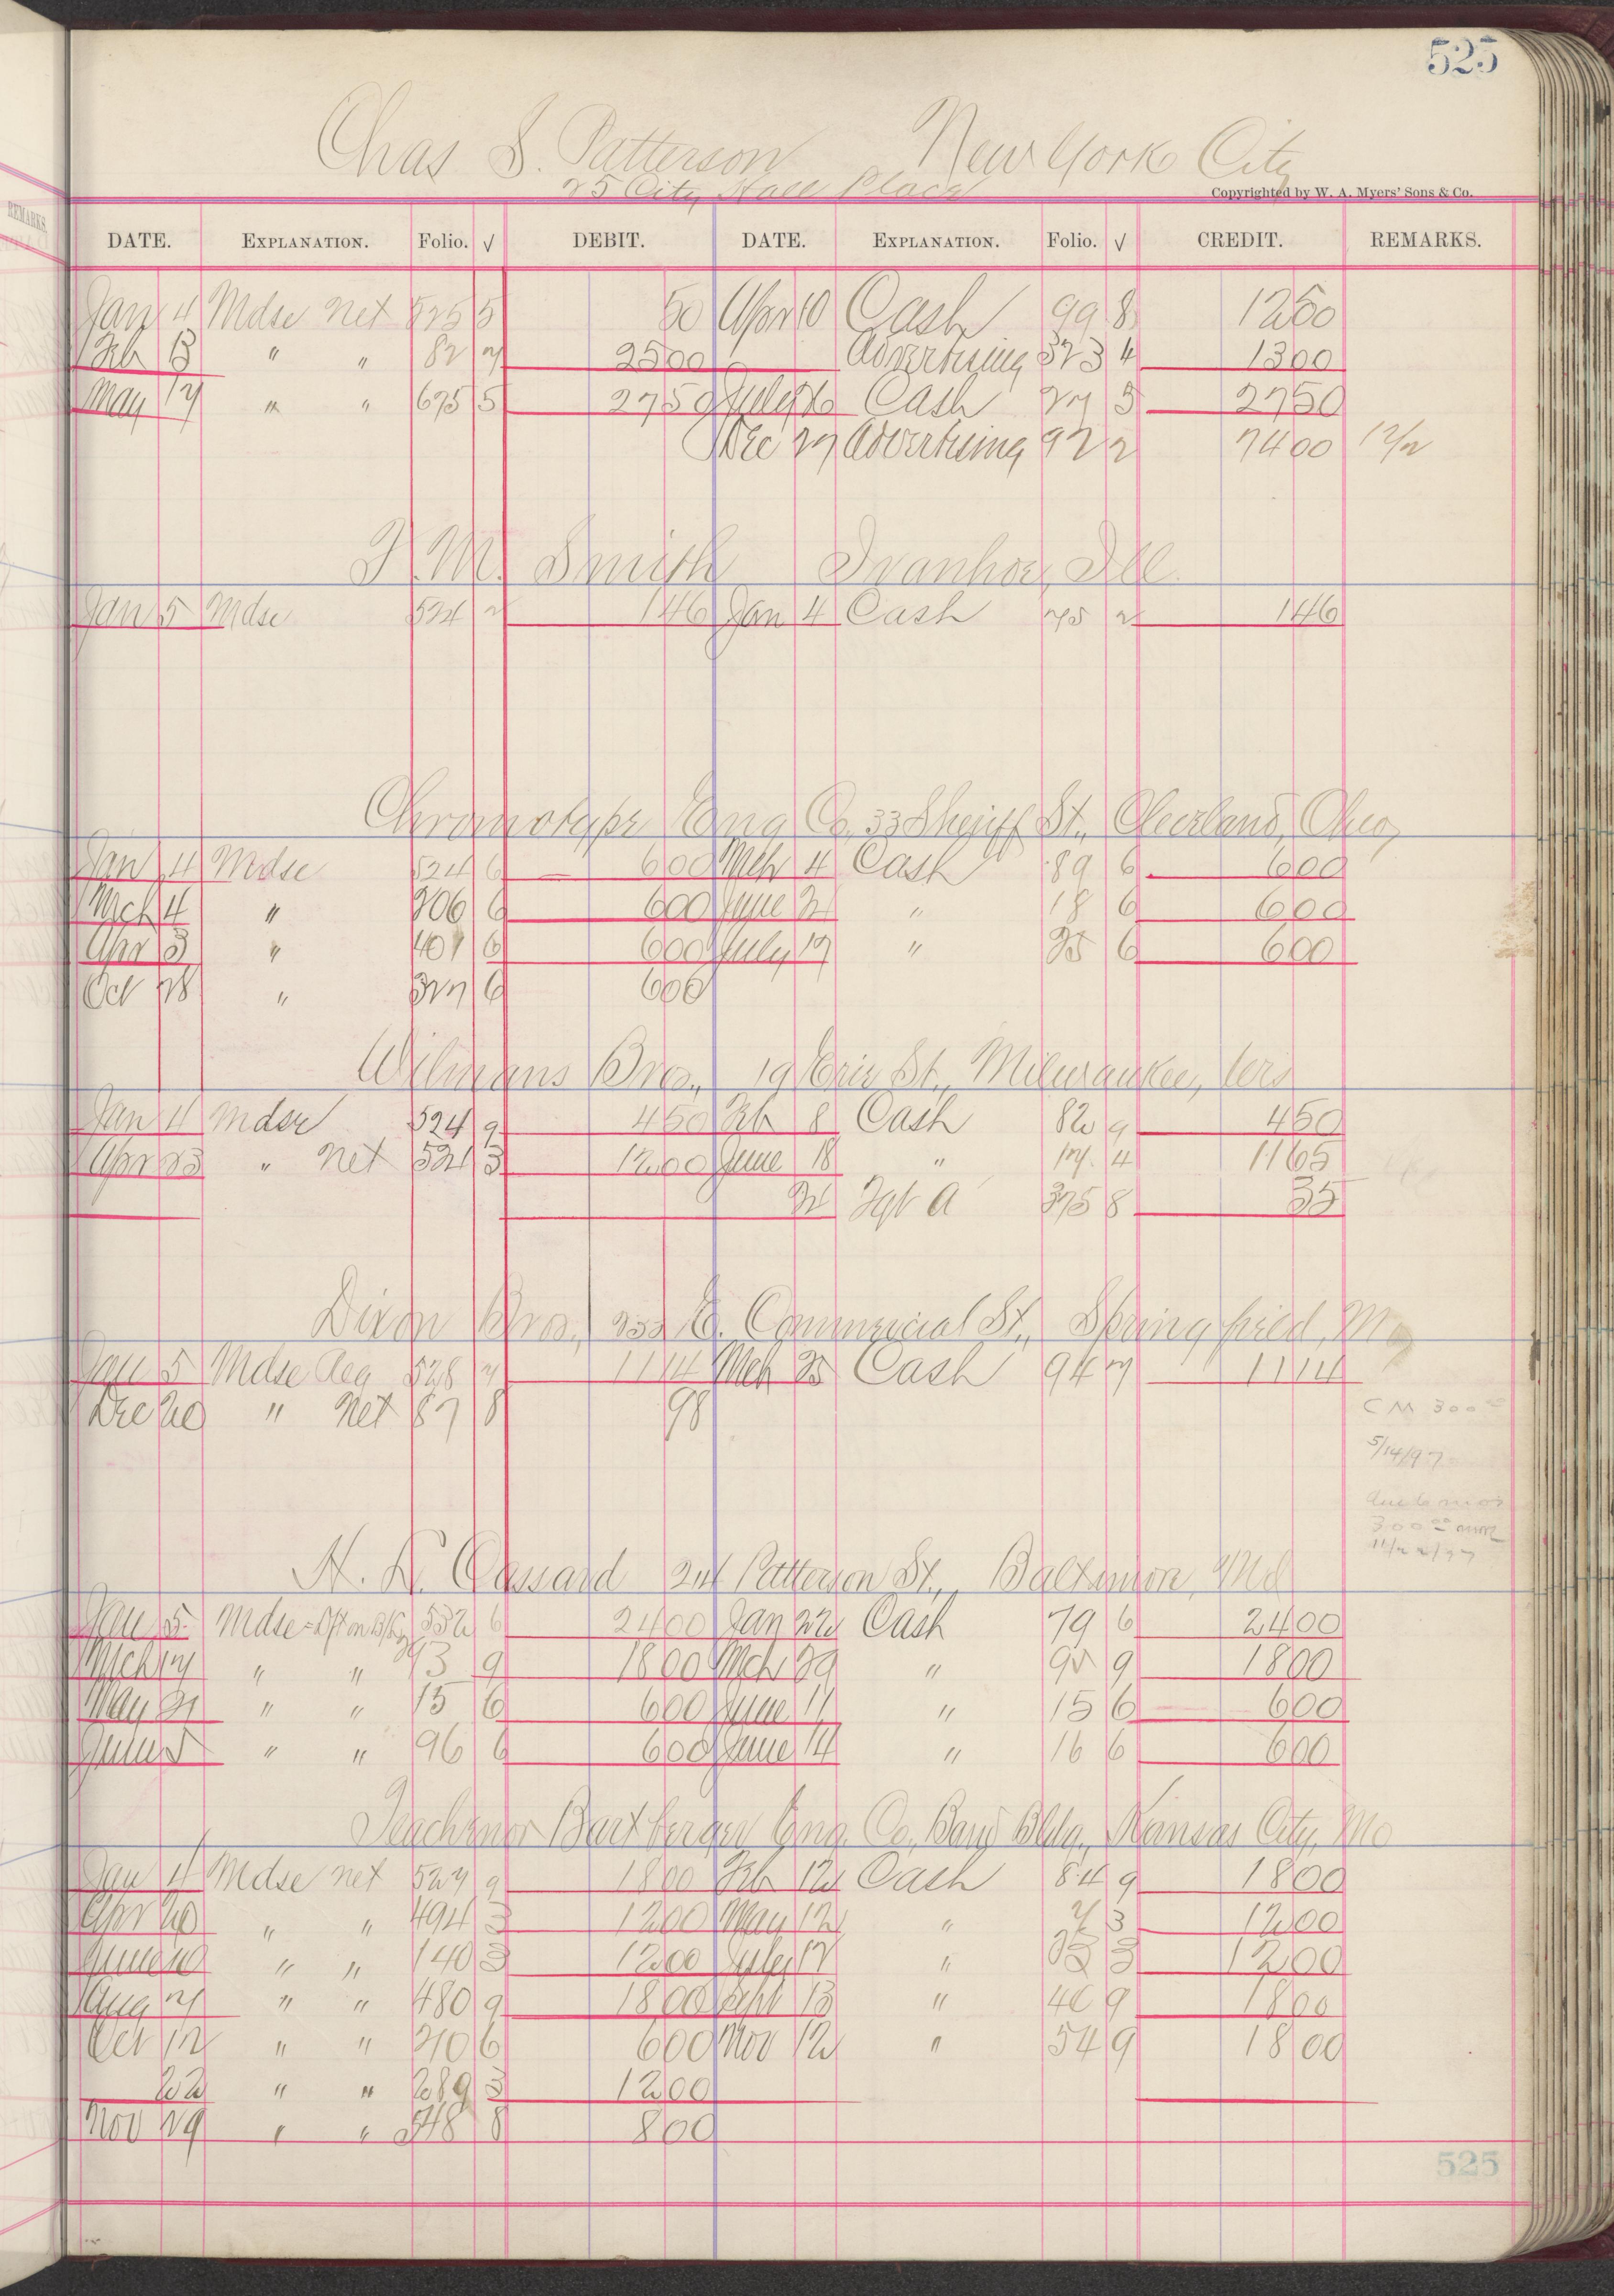 525
Chas S. Patterson New York City
25 City Hall Place
Copyrighted by W. A. Myers' Sons & Co.
DATE. EXPLANATION. Folio. √ DEBIT. DATE. EXPLANATION. Folio. √ CREDIT. REMARKS.
Jan 4 Mdse net 525 5 50 Apr 10 Cash 99 8 1250
Feb 13 " " 82 7 2500 Advertising 373 4 1300
May 17 " " 675 5 2750 July 26 Cash 27 5 2750
Dec 27 Advertising 92 2 7400 12/2
J. M. Smith Ivanhoe, Ill.
Jan 5 Mdse 524 2 146 Jan 4 Cash 75 2 146
Chromotype Eng Co, 33 Sheriff St., Cleveland, Ohio
Jan 4 Mdse 524 6 600 Mch 4 Cash 89 6 600
Mch 4 " 206 6 600 June 21 " 18 6 600
Apr 3 " 401 6 600 July 19 " 25 6 600
Oct 28 " 327 6 600
Wilmans Bros., 19 Erie St., Milwaukee, Wis
Jan 4 Mdse 524 9 450 Feb 8 Cash 82 9 450
Apr 23 " Net 521 3 1200 June 18 " 17 4 1165
21 Fgt A 375 8 35
Dixon Bros., 233 E. Commercial St., Springfield, Mo
Jan 5 Mdse Acq 528 7 1114 Mch 25 Cash 94 7 1114
Dec 20 " Net 87 8 98
CM 300
5/14/97
300 00
H. L. Cassard 24 Patterson St., Baltimore, Md
Jan 5 Mdse 532 6 2400 Jan 22 Cash 79 6 2400
Mch 17 " " 293 9 1800 Mch 29 " 95 9 1800
May 21 " " 15 6 600 June 11 " 15 6 600
June 5 " " 96 6 600 June 14 " 16 6 600
Teachenor Bartberger Eng. Co, Bldg., Kansas City, Mo
Jan 4 Mdse net 527 9 1800 Feb 12 Cash 84 9 1800
Apr 20 " " 494 3 1200 May 12 " 7 3 1200
June 10 " " 140 3 1200 July 17 " 3 1200
Aug 21 " " 480 9 1800 Sept 13 " 40 9 1800
Oct 12 " " 210 6 600 Nov 12 " 54 9 1800
22 " " 289 3 1200
Nov 29 " " 548 8 800
525